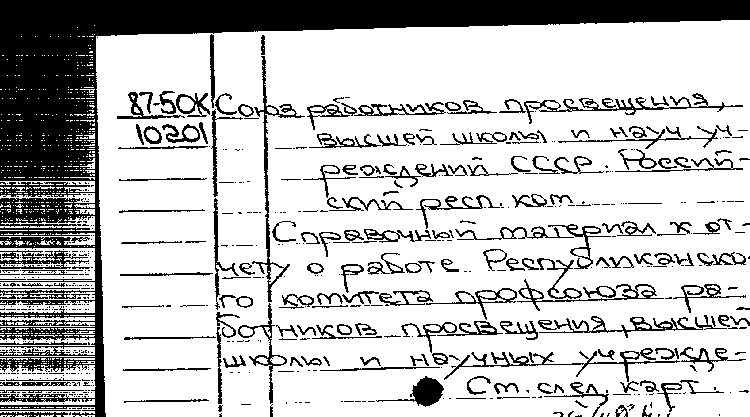 87-50К Союз работников просвещения,
10201 высшей школы и науч. уч-
реждений СССР. Россий-
ский респ. ком.
Справочный материал к от-
чету о работе Республиканско-
го комитета профсоюза ра-
ботников просвещения, высшей
школы и научных учрежде-
См. след. карт.